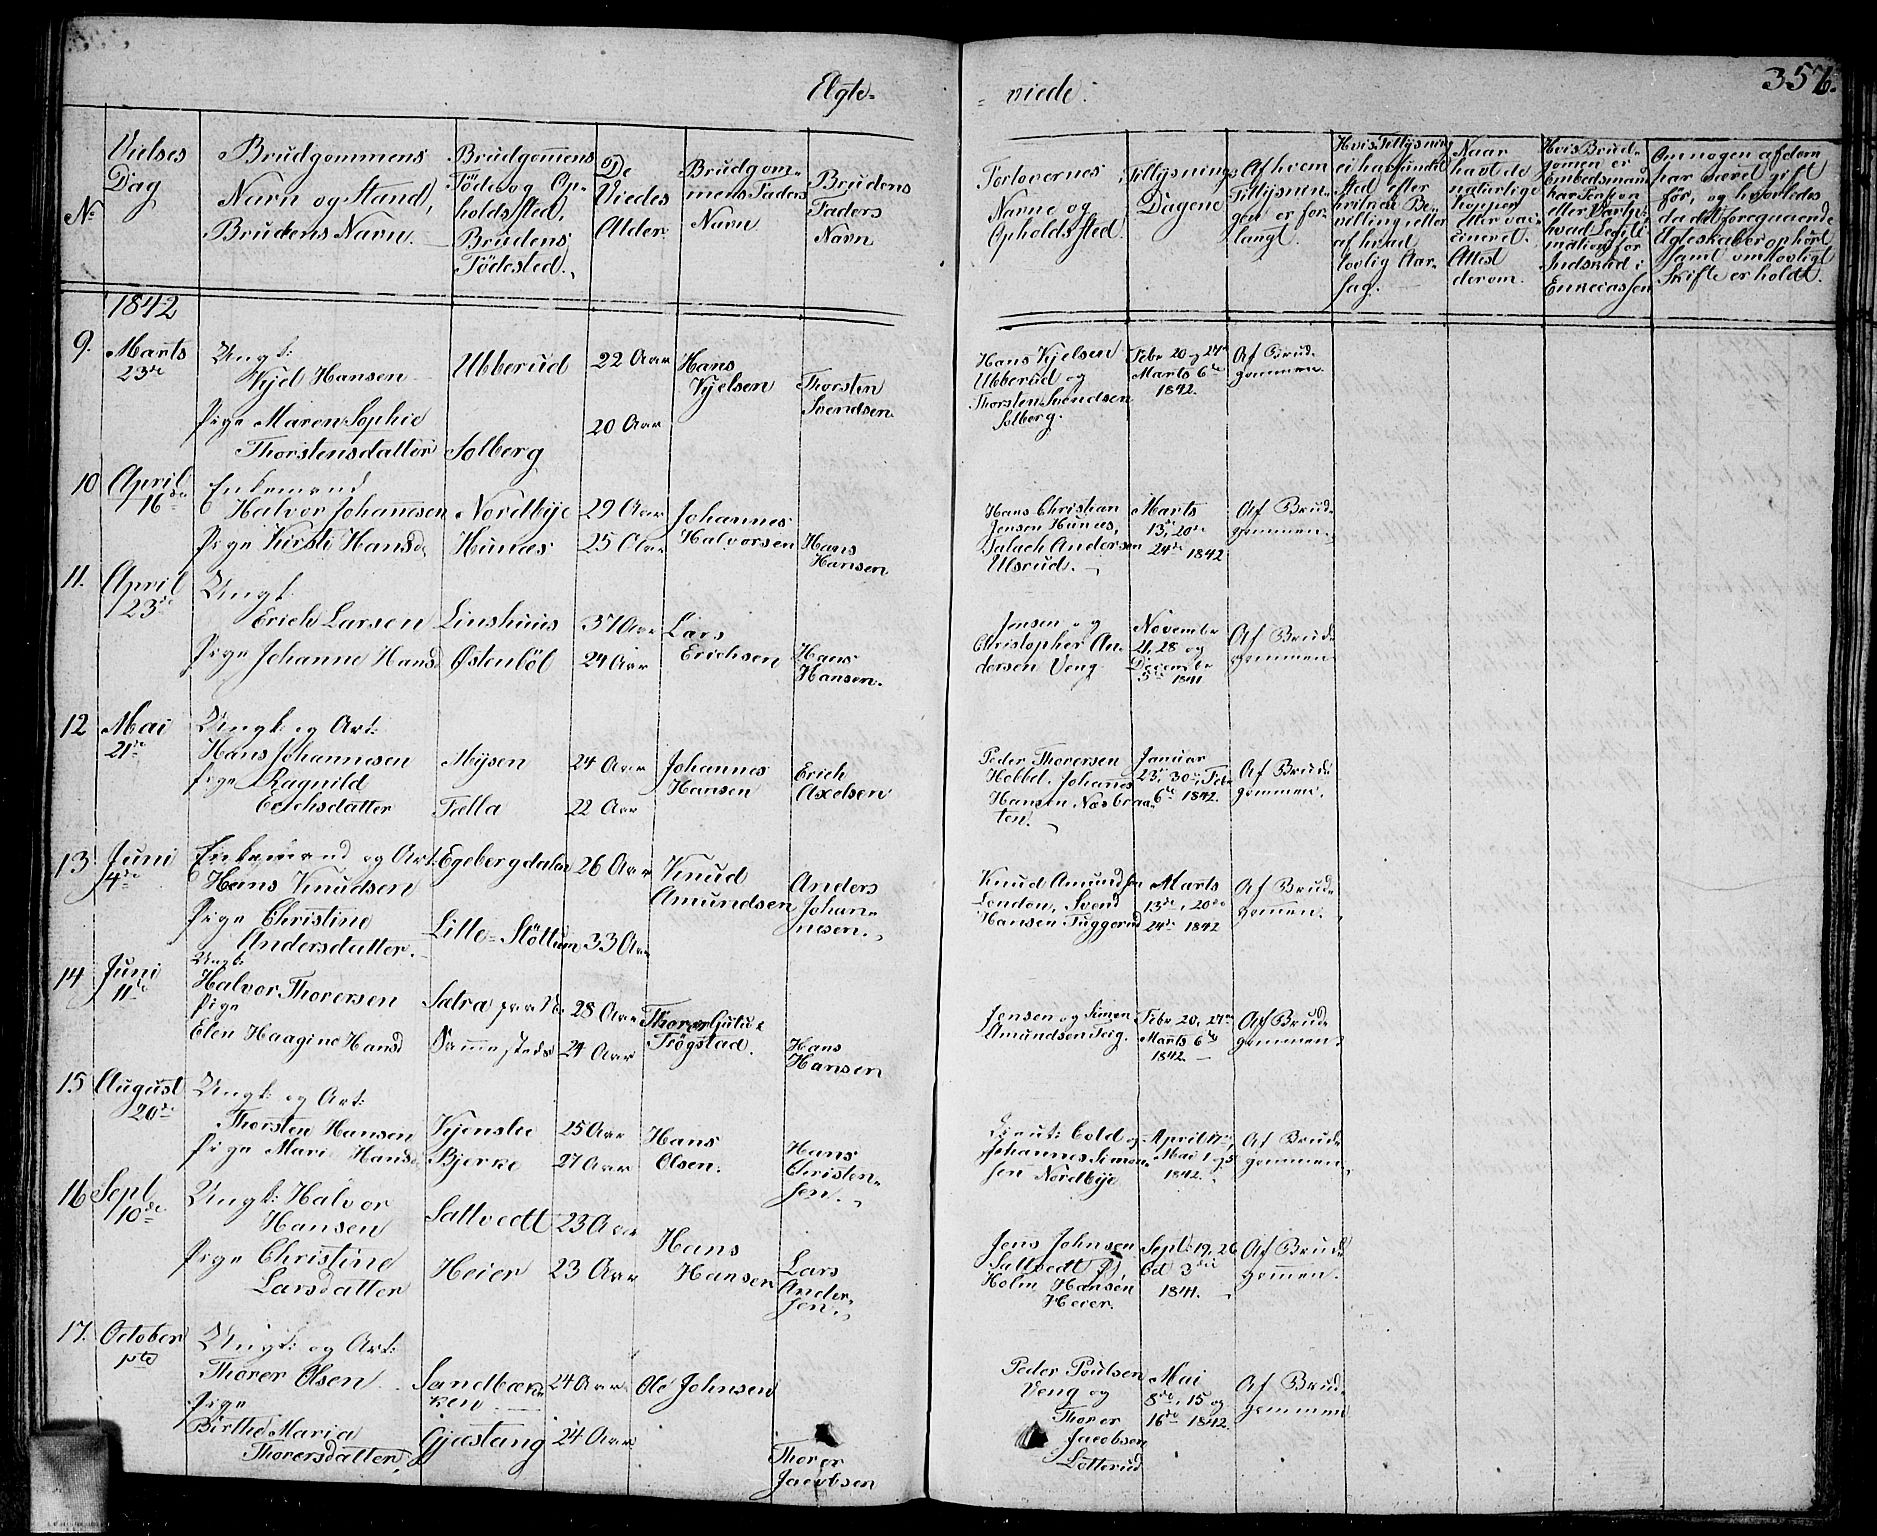 Egte=
= viede.
357.
No
Vielses
Dag
Brudgommens
Navn og Stand,
Brudens Navn.
Brudgomens
Föde og Op-
holdssted,
Brudens
Födested.
De
Viedes
Alder
Brudgom-
mens Faders
Navn
Brudens
Faders
Navn
Forlovernes
Navne og
Opholdssted
Tillysnings
Dagene
Af hvem
Tillysnin-
gen er for-
langt.
Hvis Tillysning
ei har fundet
Sted efter
hvilken Be-
villing eller
af hvad
lovlig Aar-
sag.
Naar
havt de
naturlige
Kopper
eller vac-
cineret.
Attest
derom.
Hvis Brud-
gomen er
Embedsmand
hvad Legiti-
mation for
Indskud i
Enkecassen
Om nogen af dem
har været gift
för, og hvorledes
da det foregaaende
Egteskab er ophört
samt om lovligt
Skifte er holdt.
1842
9. Marts
23de
Ungk:
Kjel Hansen
Pige Maren Sophie
Thorstensdatter
Ubberud
Solberg
22 Aar
20 Aar
Hans
Kjelsen
Thorsten
Svendsen
Hans Kjelsen
Ubberud og
Thorsten Svendsen
Solberg.
Febr 20 og 27de
Marts 6te
1842.
Af Brud-
gommen
10 April
16de
Enkemand
Halvor Johannesen
Pige Kirsti Hansd.
Nordbÿe
Hunæs
29 Aar
25 Aar
Johannes
Halvorsen
Hans
Hansen
Hans Christian
Jensen Hunæs,
Andersen
Ulsrud.
Marts
13de, 20de
24de 1842
Af Brud-
gommen.
11. April
23de
Ungk
Erich Larsen
Pige Johanne Hansd
Linshuus
Østenböl
37 Aar
24 Aar
Lars
Erichsen
Hans
Hansen.
Jensen og
Christopher An-
dersen Veng
Novembr
21, 28 og
Decembr
5te 1841
Af Brud-
gommen
12 Mai
21de
Ungk: og Art:
Hans Johannesen
Pige Ragnild
Erichsdatter
Mÿsen
Falla
24 Aar
22 Aar
Johannes
Hansen
Erich
Axelsen
Peder Thorersen
Hobbel. Johannes
Hansen Næsbraa-
ten.
Januar
23de, 30te, Feb.
6te 1842.
Af Brud-
gommen.
13 Juni
4de
Enkemand og Art:
Hans Knudsen
Pige Christine
Andersdatter.
Egebergdalen
Lille=Slöttum
26 Aar
33 Aar
Knud
Amundsen
Anders
Johan-
nesen.
Knud Amundsen
London, Svend
Hansen Tuggerud
Marts
13de, 20de
24de 1842
Af Brud-
gommen.
14 Juni
11te
Ungk:
Halvor Thorersen
Pige
Elen Haagine Hansd
Sammesteds
28 Aar
24 Aar
Trögstad.
Hans
Hansen
Jensen og Simen
Amundsen Teig.
Febr 20, 27de
Marts 6te
1842.
Af Brud-
gommen.
15 August
20de
Ungk: og Art:
Thorsten Hansen
Pige Mari Hansd
Kjenslie
Bjerke
25 Aar
27 Aar
Hans
Olsen.
Hans
Christen-
sen.
Lieut: Cold og
Johannes Simen-
sen Nordbÿe
April 17de
Mai 1 og 5
1842.
Af Brud-
gommen.
16 Sept
10de
Ungk: Halvor
Hansen
Pige Christine
Larsdatter
Saltvedt
Heier
23 Aar
23 Aar
Hans
Hansen
Lars
Ander-
sen.
Jens Johnsen
Saltvedt
Holm Hansen
Heier.
Sept: 19, 26
Oct 3die
1841.
Af Brud-
gommen.
17. October
1ste
Ungk: og Art:
Thorer Olsen
Pige
Birthe Maria
Thorersdatter.
Sandbæk-
ken
Gjæstang
24 Aar
24 Aar
Ole Johnsen
Thorer
Jacobsen
Peder Poulsen
Veng og
Thorer
Jacobsen
Lotterud
Mai
8de, 15 og
16de 1842.
Af Brud-
gommen